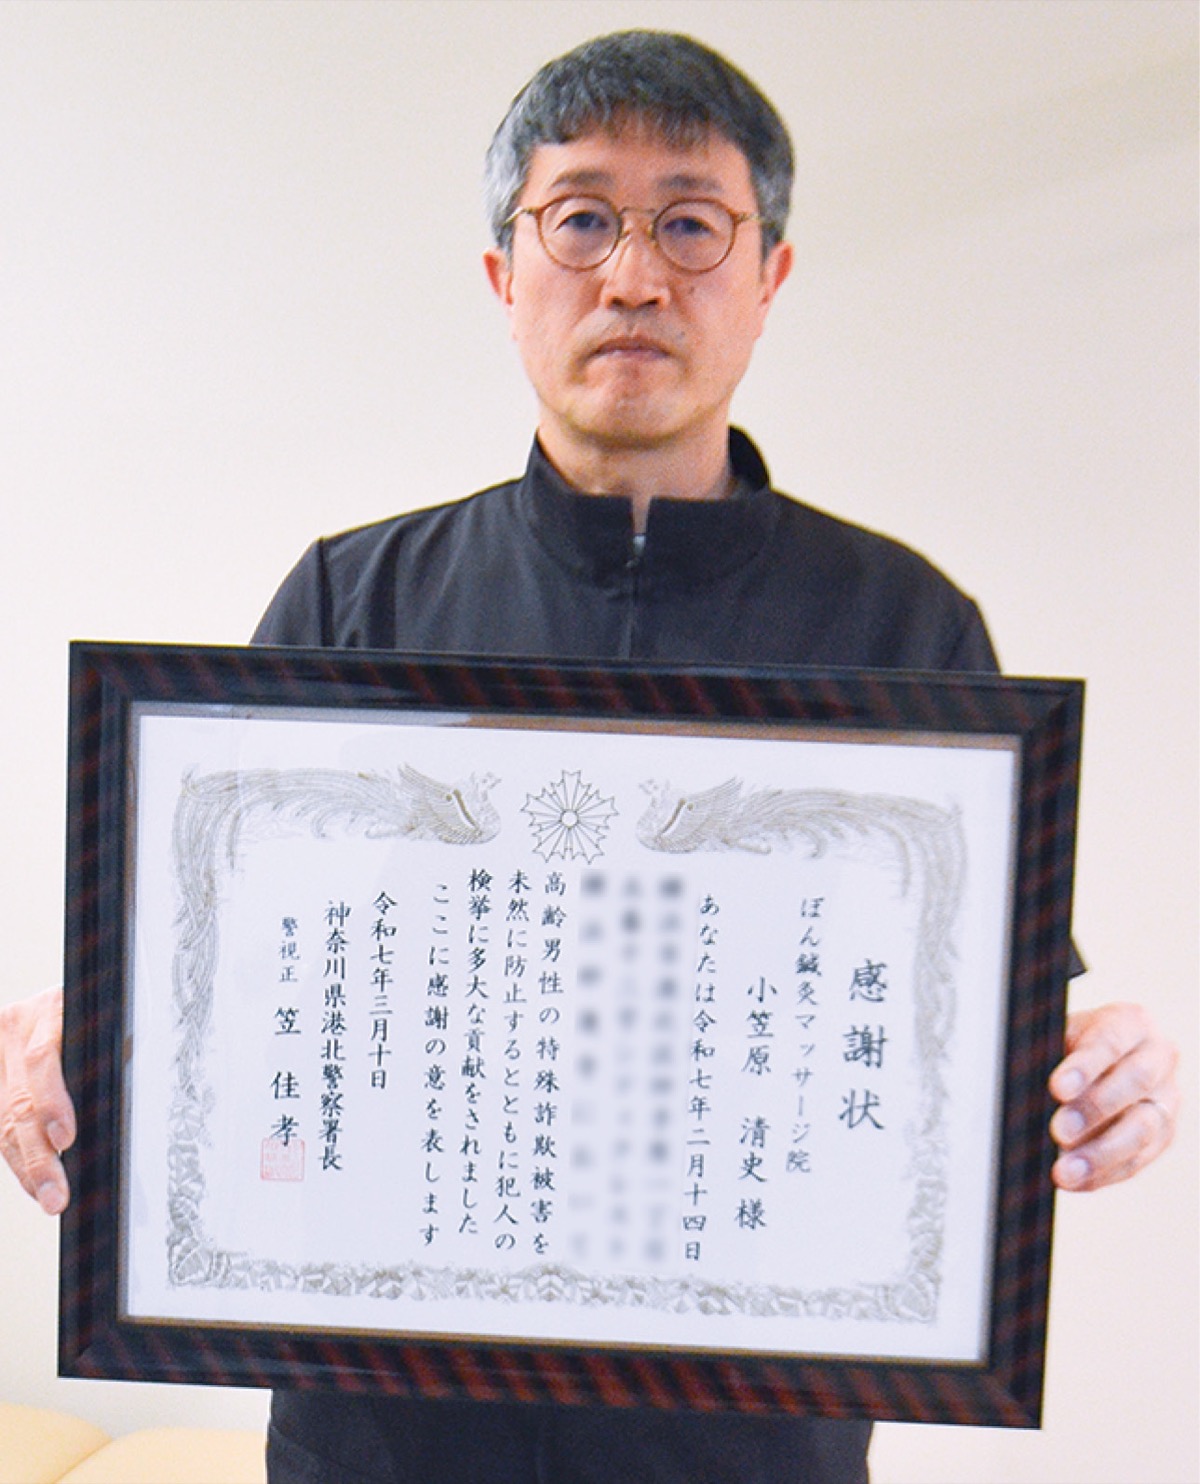 感謝状
ぼん鍼灸マッサージ院
小笠原 清史 様
あなたは令和七年二月十四日
高齢男性の特殊詐欺被害を
未然に防止するとともに犯人の
検挙に多大な貢献をされました
ここに感謝の意を表します
令和七年三月十日
神奈川県港北警察署長
警視正 笠 佳孝